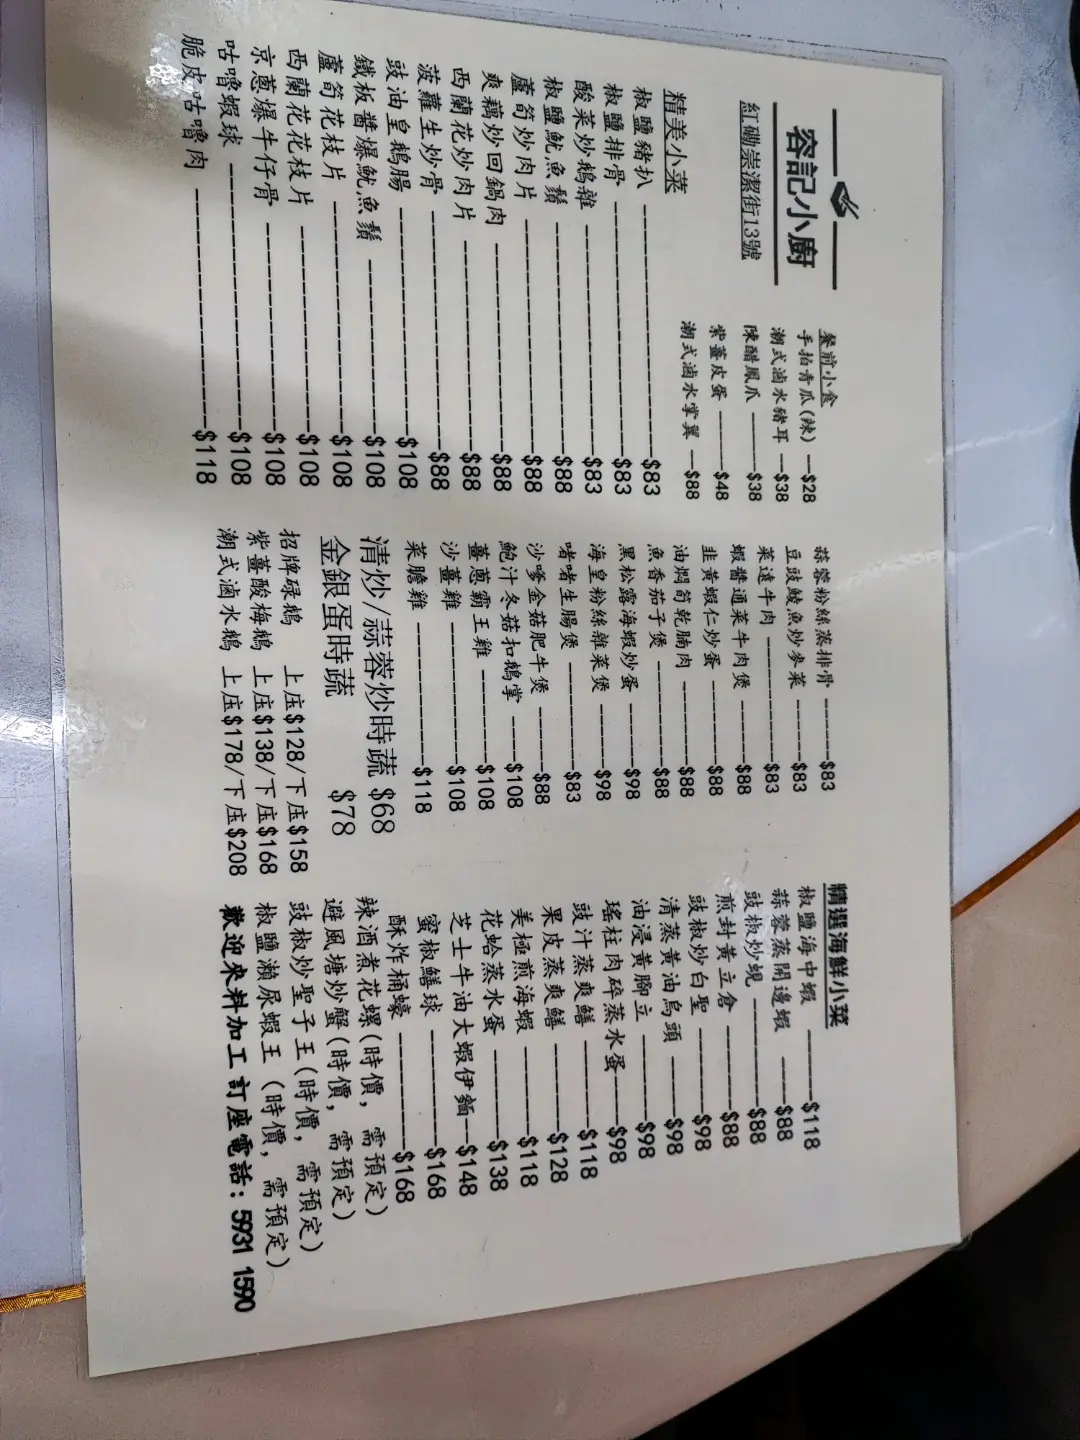 容記小廚
紅磡崇潔街13號
餐前小食
手拍青瓜(辣) $28
潮式滷水豬耳 $38
陳醋鳳爪 $38
紫薑皮蛋 $48
潮式滷水掌翼 $88
精美小菜
椒鹽豬扒 $83
椒鹽排骨 $83
酸菜炒鵝雜 $83
椒鹽魷魚鬚 $88
蘆筍炒肉片 $88
爽藕炒回鍋肉 $88
西蘭花炒肉片 $88
菠蘿生炒骨 $88
豉油皇鵝腸 $108
鐵板醬爆魷魚鬚 $108
蘆筍花枝片 $108
西蘭花花枝片 $108
京蔥爆牛仔骨 $108
咕嚕蝦球 $108
脆皮咕嚕肉 $118
蒜蓉粉絲蒸排骨 $83
豆豉鯪魚炒麥菜 $83
菜遠牛肉 $83
蝦醬通菜牛肉煲 $88
韭黃蝦仁炒蛋 $88
油燜筍乾腩肉 $88
魚香茄子煲 $88
黑松露海蝦炒蛋 $98
海皇粉絲雜菜煲 $98
啫啫生腸煲 $83
沙嗲金菇肥牛煲 $88
鮑汁冬菇扣鵝掌 $108
薑蔥霸王雞 $108
沙薑雞 $108
菜膽雞 $118
清炒/蒜蓉炒時蔬 $68
金銀蛋時蔬 $78
招牌碌鵝 上庄$128/下庄$158
紫薑酸梅鵝 上庄$138/下庄$168
潮式滷水鵝 上庄$178/下庄$208
精選海鮮小菜
椒鹽海中蝦 $118
蒜蓉蒸開邊蝦 $88
豉椒炒蜆 $88
煎封黃立倉 $88
豉椒炒白聖 $98
清蒸黃油烏頭 $98
油浸黃腳立 $98
瑤柱肉碎蒸水蛋 $98
豉汁蒸爽鱔 $118
果皮蒸爽鱔 $128
美極煎海蝦 $118
花蛤蒸水蛋 $138
芝士牛油大蝦伊麵 $148
蜜椒鱔球 $168
酥炸桶蠔 $168
辣酒煮花螺(時價, 需預定)
避風塘炒蟹(時價, 需預定)
豉椒炒聖子王(時價, 需預定)
椒鹽瀨尿蝦王 (時價, 需預定)
歡迎來料加工 訂座電話: 5931 1590